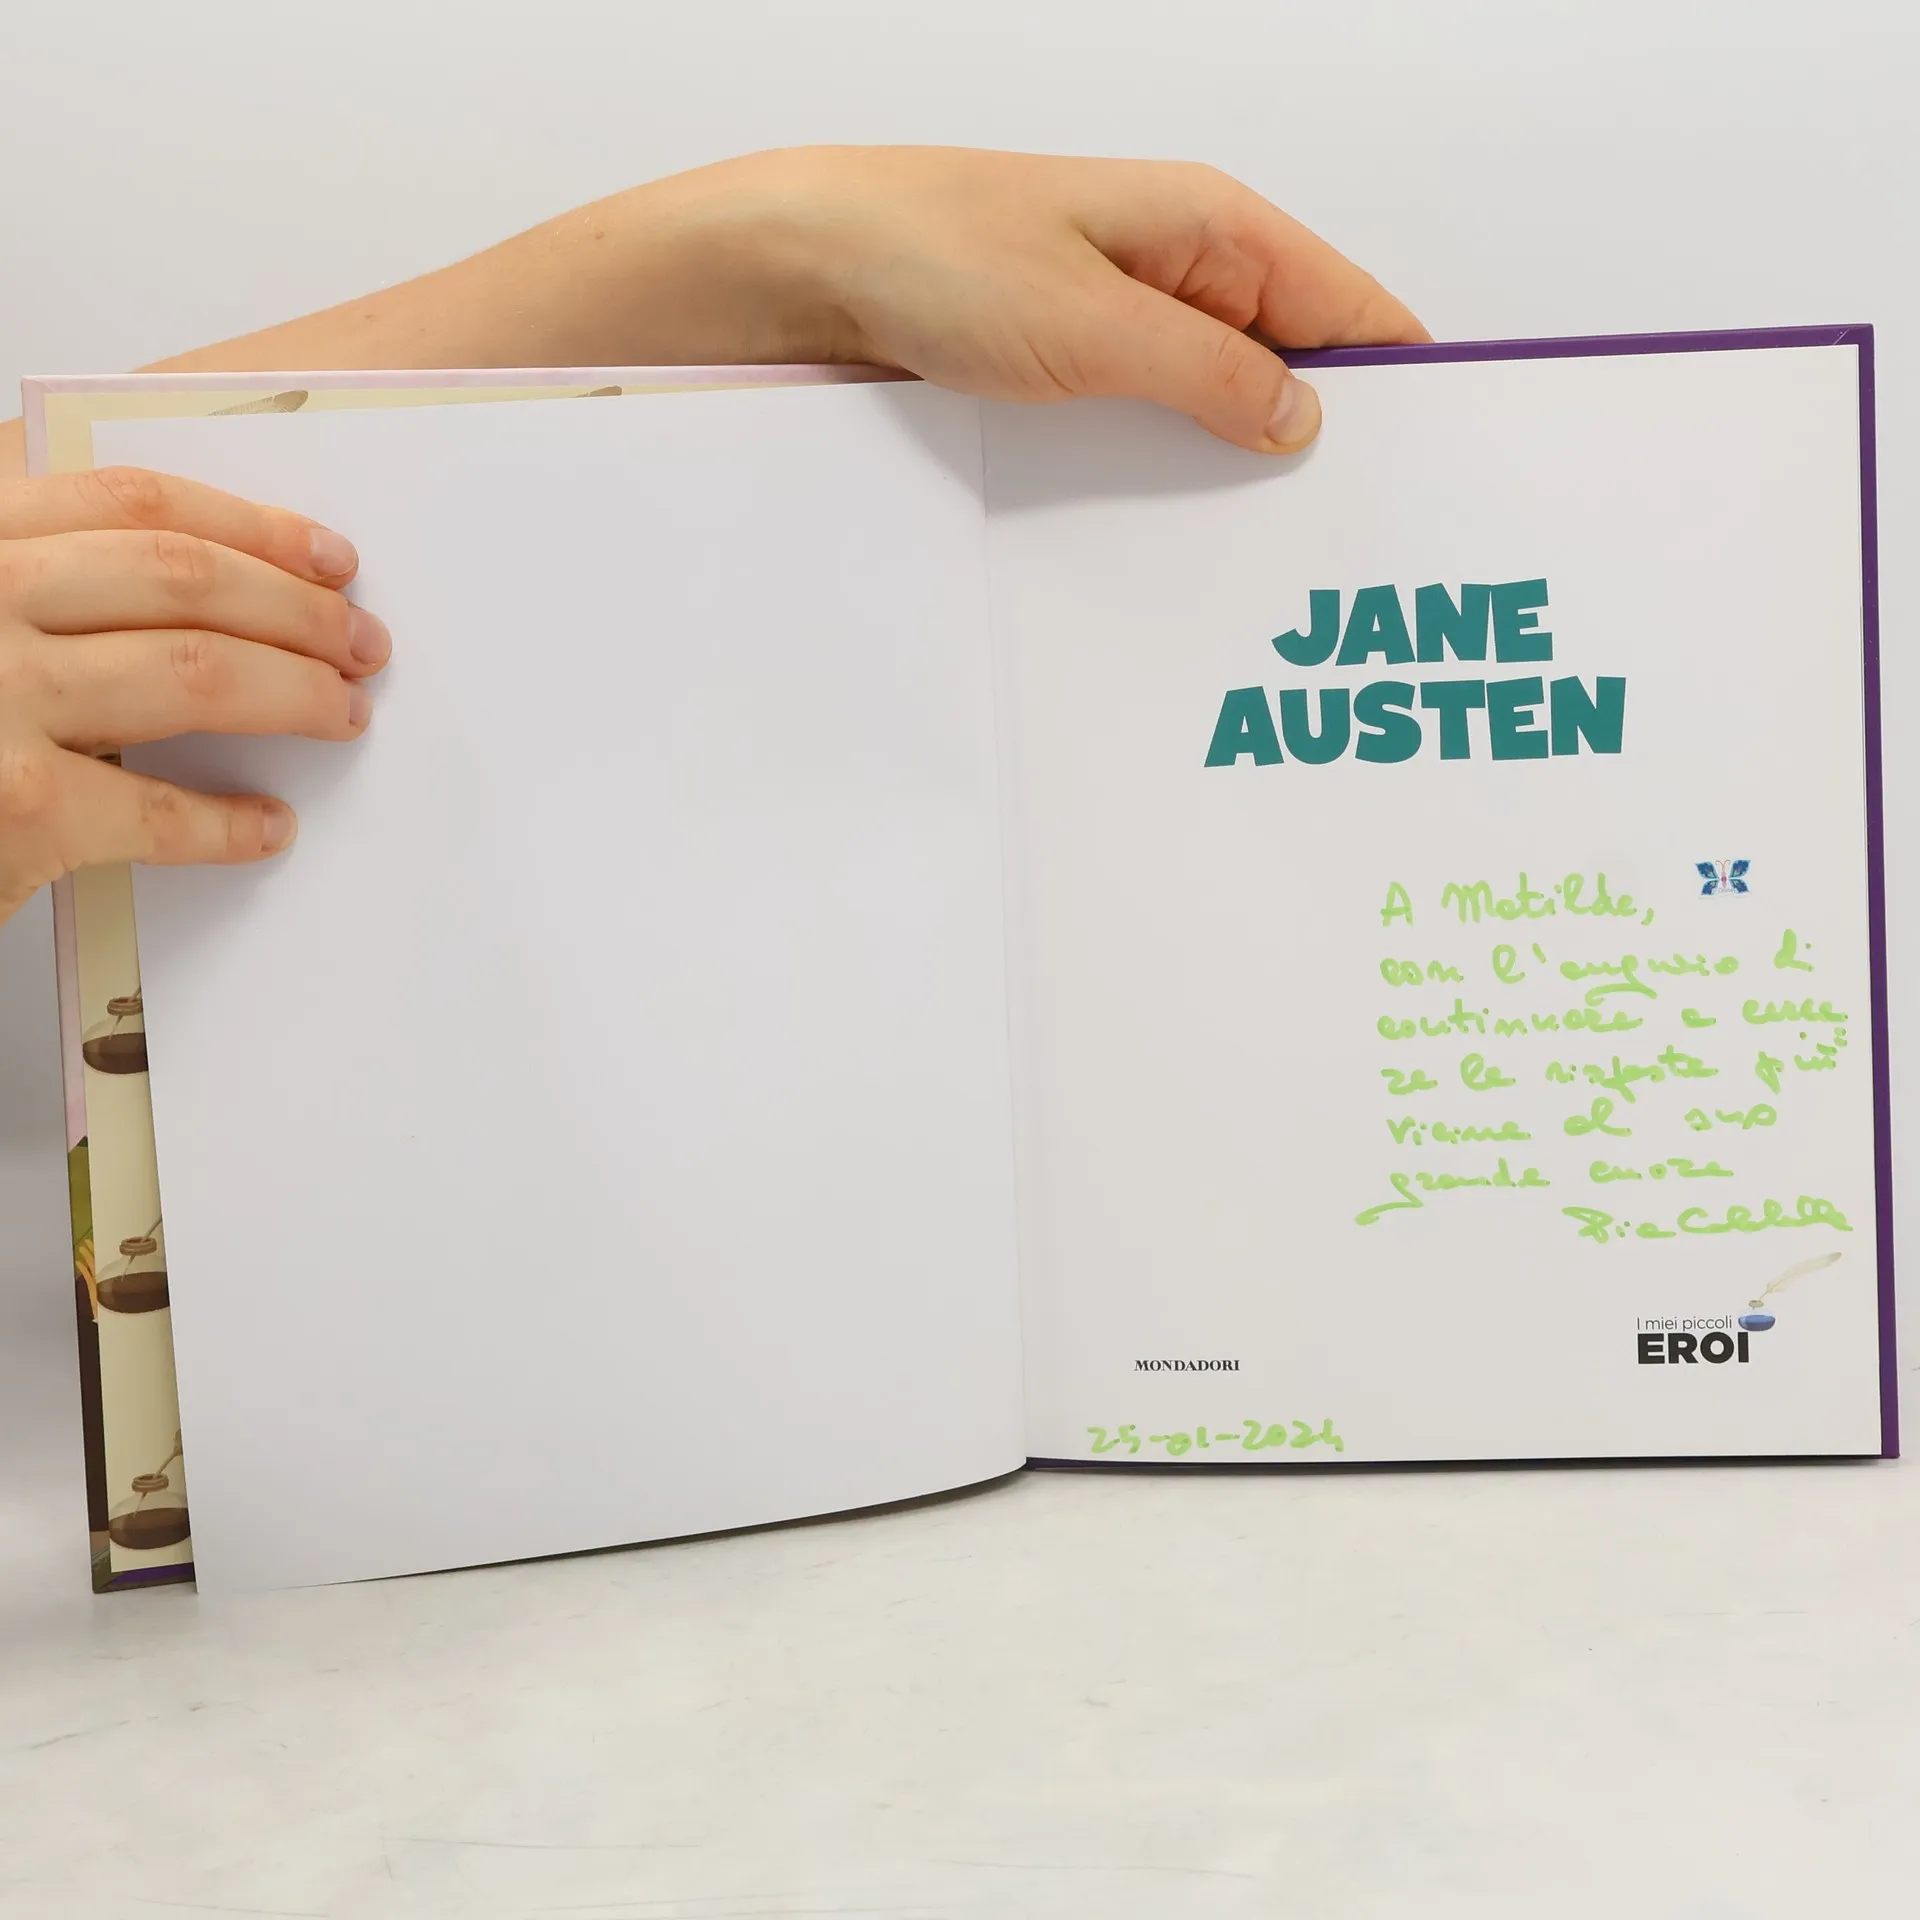 JANE
AUSTEN
A Matilde,
con l'augurio di
continuare a cerca
re le risposte più
vicine al suo
grande cuore
Pia
I miei piccoli
EROI
MONDADORI
25-01-2024